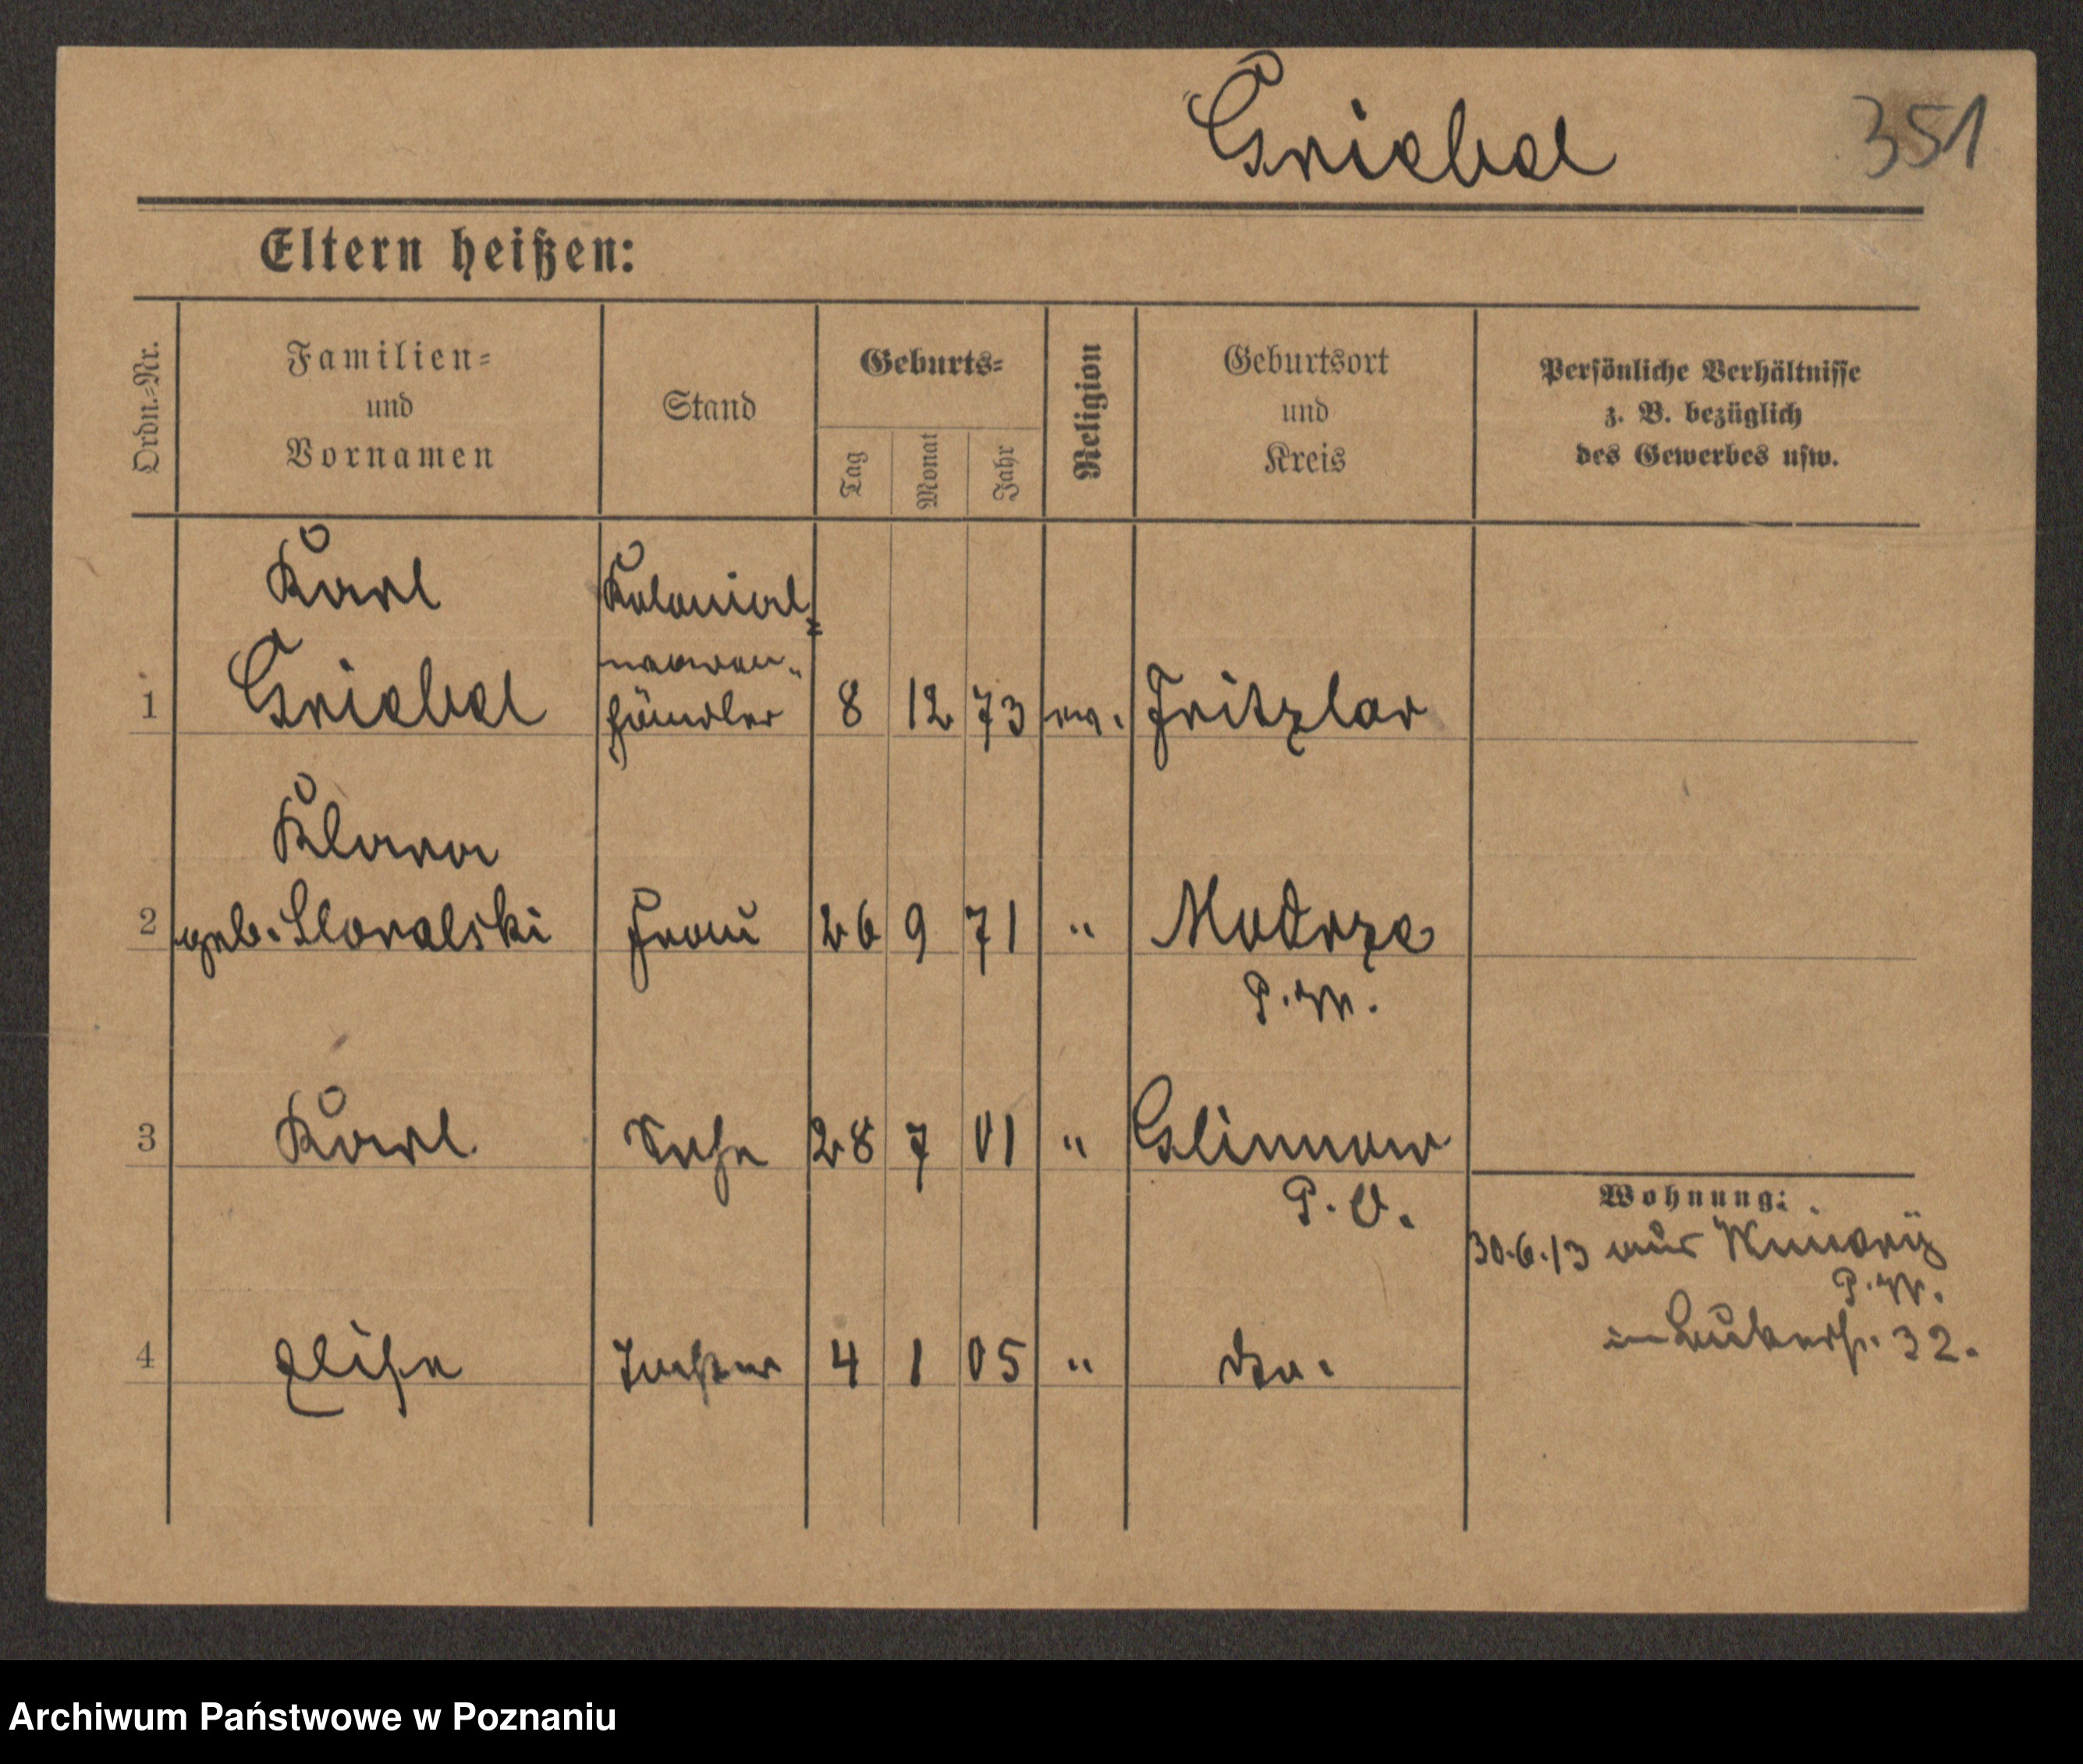 Griebel 351
Eltern heißen:
Ordn.-Nr.
Familien-
und
Vornamen
Stand
Geburts-
Tag
Monat
Jahr
Religion
Geburtsort
und
Kreis
Persönliche Verhältnisse
z. B. bezüglich
des Gewerbes usw.
Karl Kolonial-
waaren-
1 Griebel händler 8 12 73 ev. Fritzlar
Klara
2 geb. Skoralski Frau 26 9 71 " Modrze
P. W.
3 Karl Sohn 28 7 01 " Glinnow
P. O.
Wohnung:
30.6.13 aus
P. W.
in 32.
4 Elise Tochter 4 1 05 " do.
Archiwum Państwowe w Poznaniu